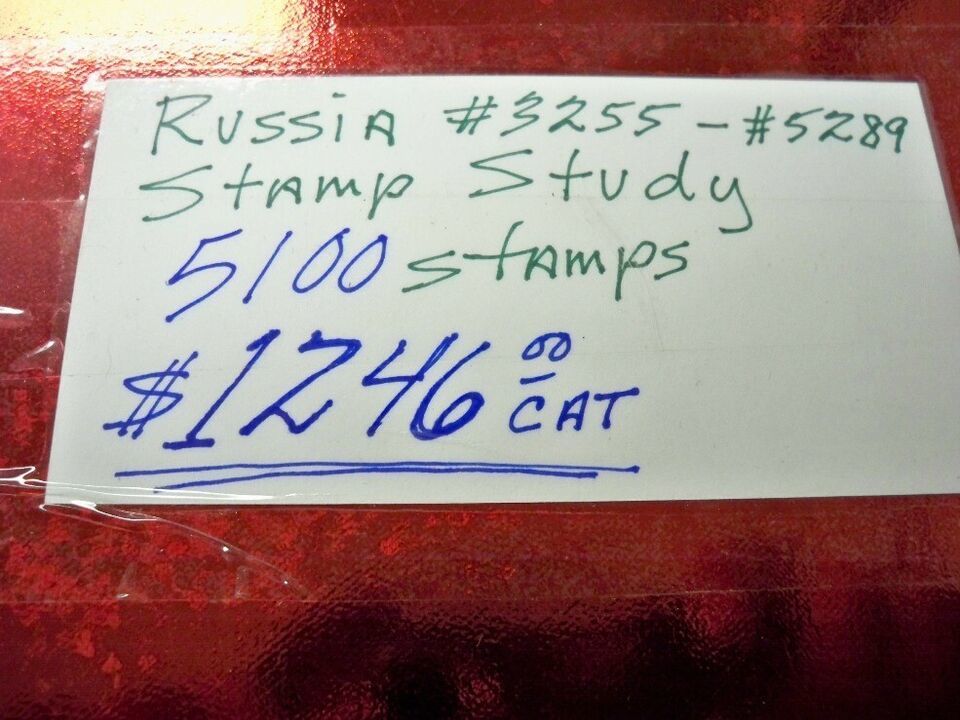 Russia #3255 - #5289
Stamp Study
5100 stamps
$1246.00 CAT